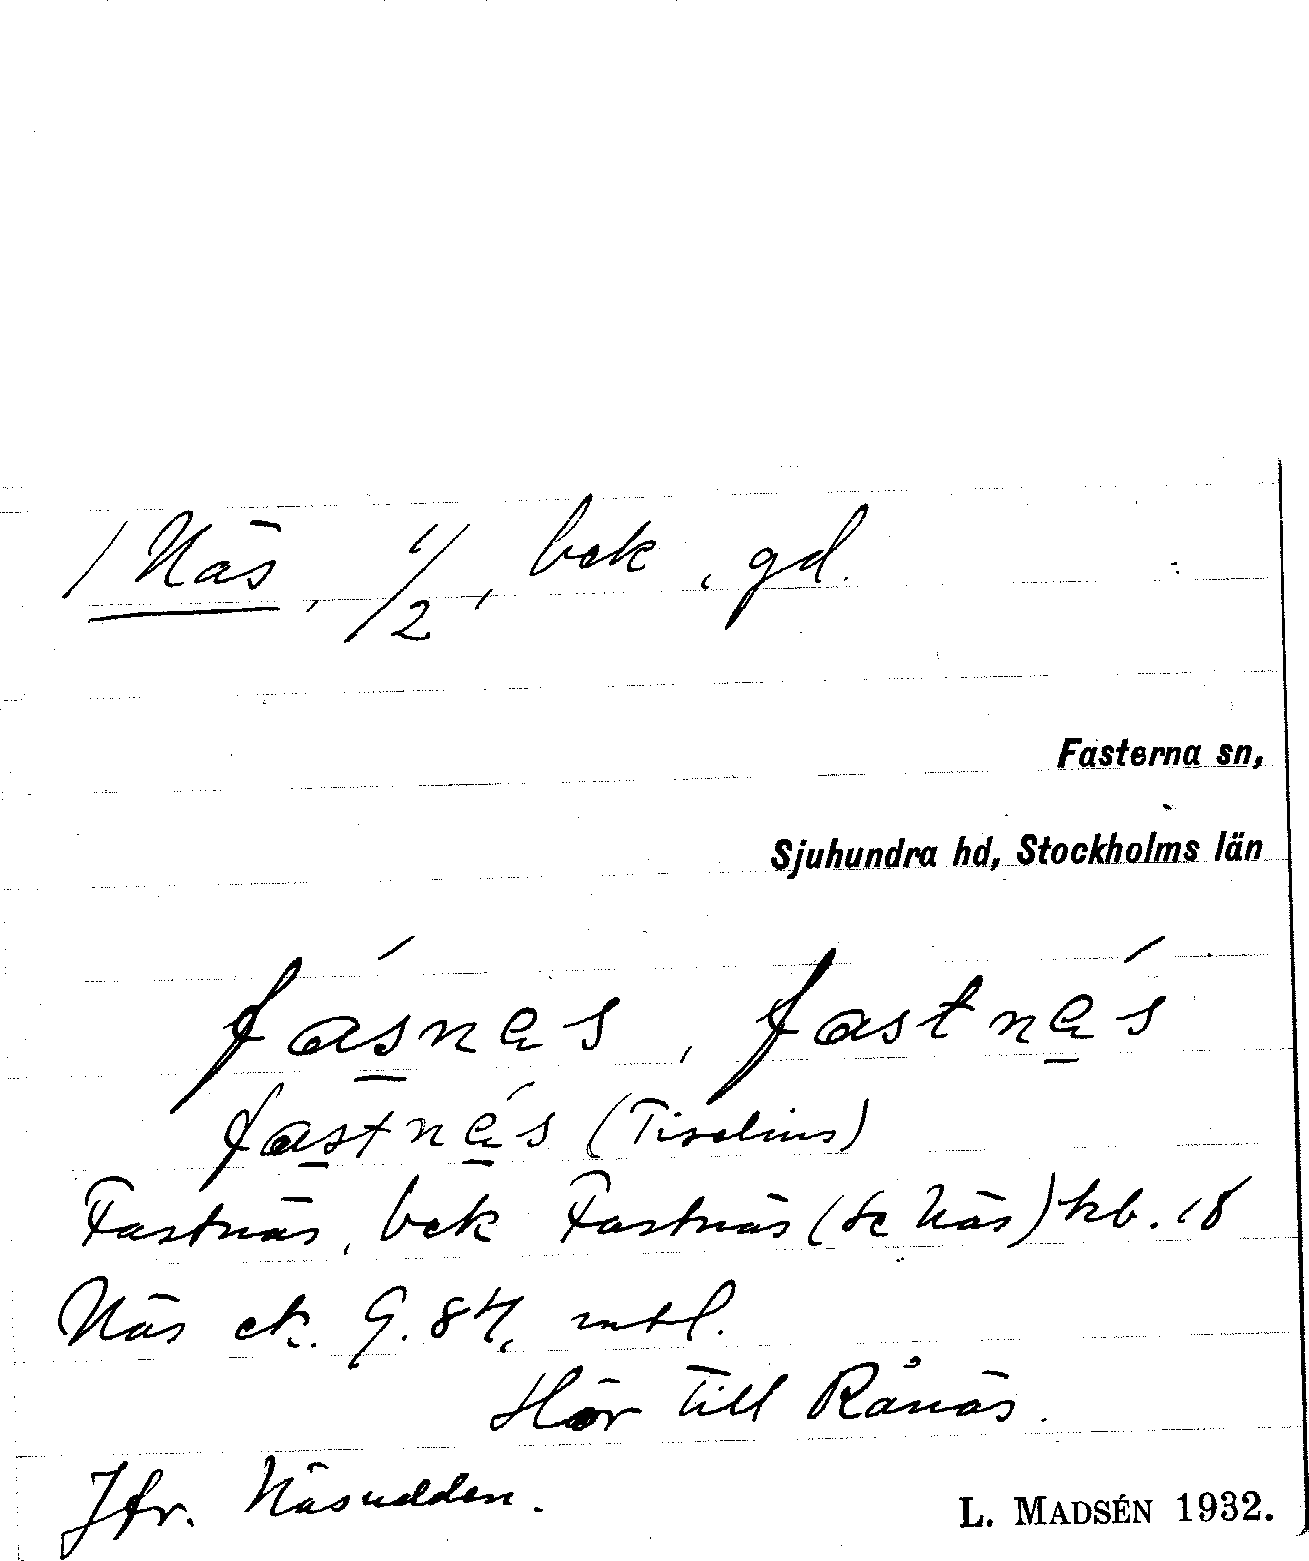 / Näs, 1/2, bek, gd.
Fasterna sn,
Sjuhundra hd, Stockholms län
fásnes, fastnés
fastnés (Tiselius)
Fastnäs, bek Fastnäs (el Näs) kb. 18
Näs ek. 9.84, mtl.
Hör till Rånäs.
Jfr. Näsudden.
L. MADSÉN 1932.